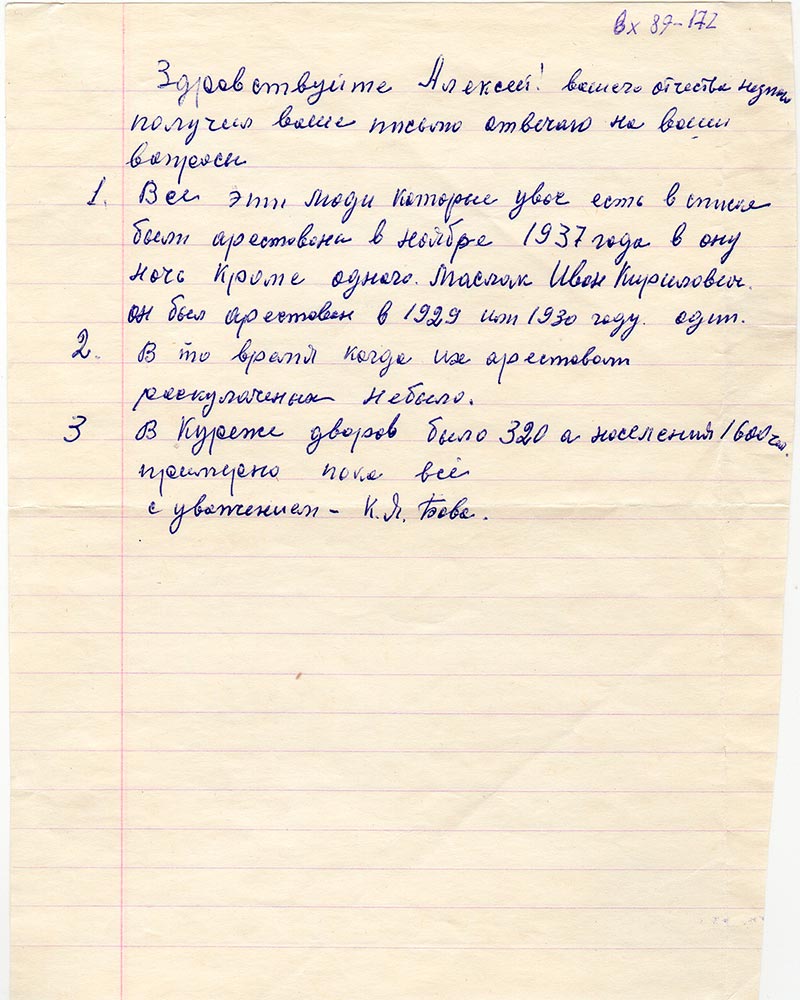 Вх 89-172
Здравствуйте Алексей! вашего отчества незнаю
получил ваше письмо отвечаю на ваши
вопросы
1. Все эти люди которые увас есть в списке
были арестованы в ноябре 1937 года в одну
ночь кроме одного. Маслак Иван Кирилович.
он был арестован в 1929 или 1930 году. один.
2. В то время когда их арестовали
раскулаченых небыло.
3 В Куреже дворов было 320 а населения 1600 чел.
примерно пока всё
с уважением - К.Я. Бова.